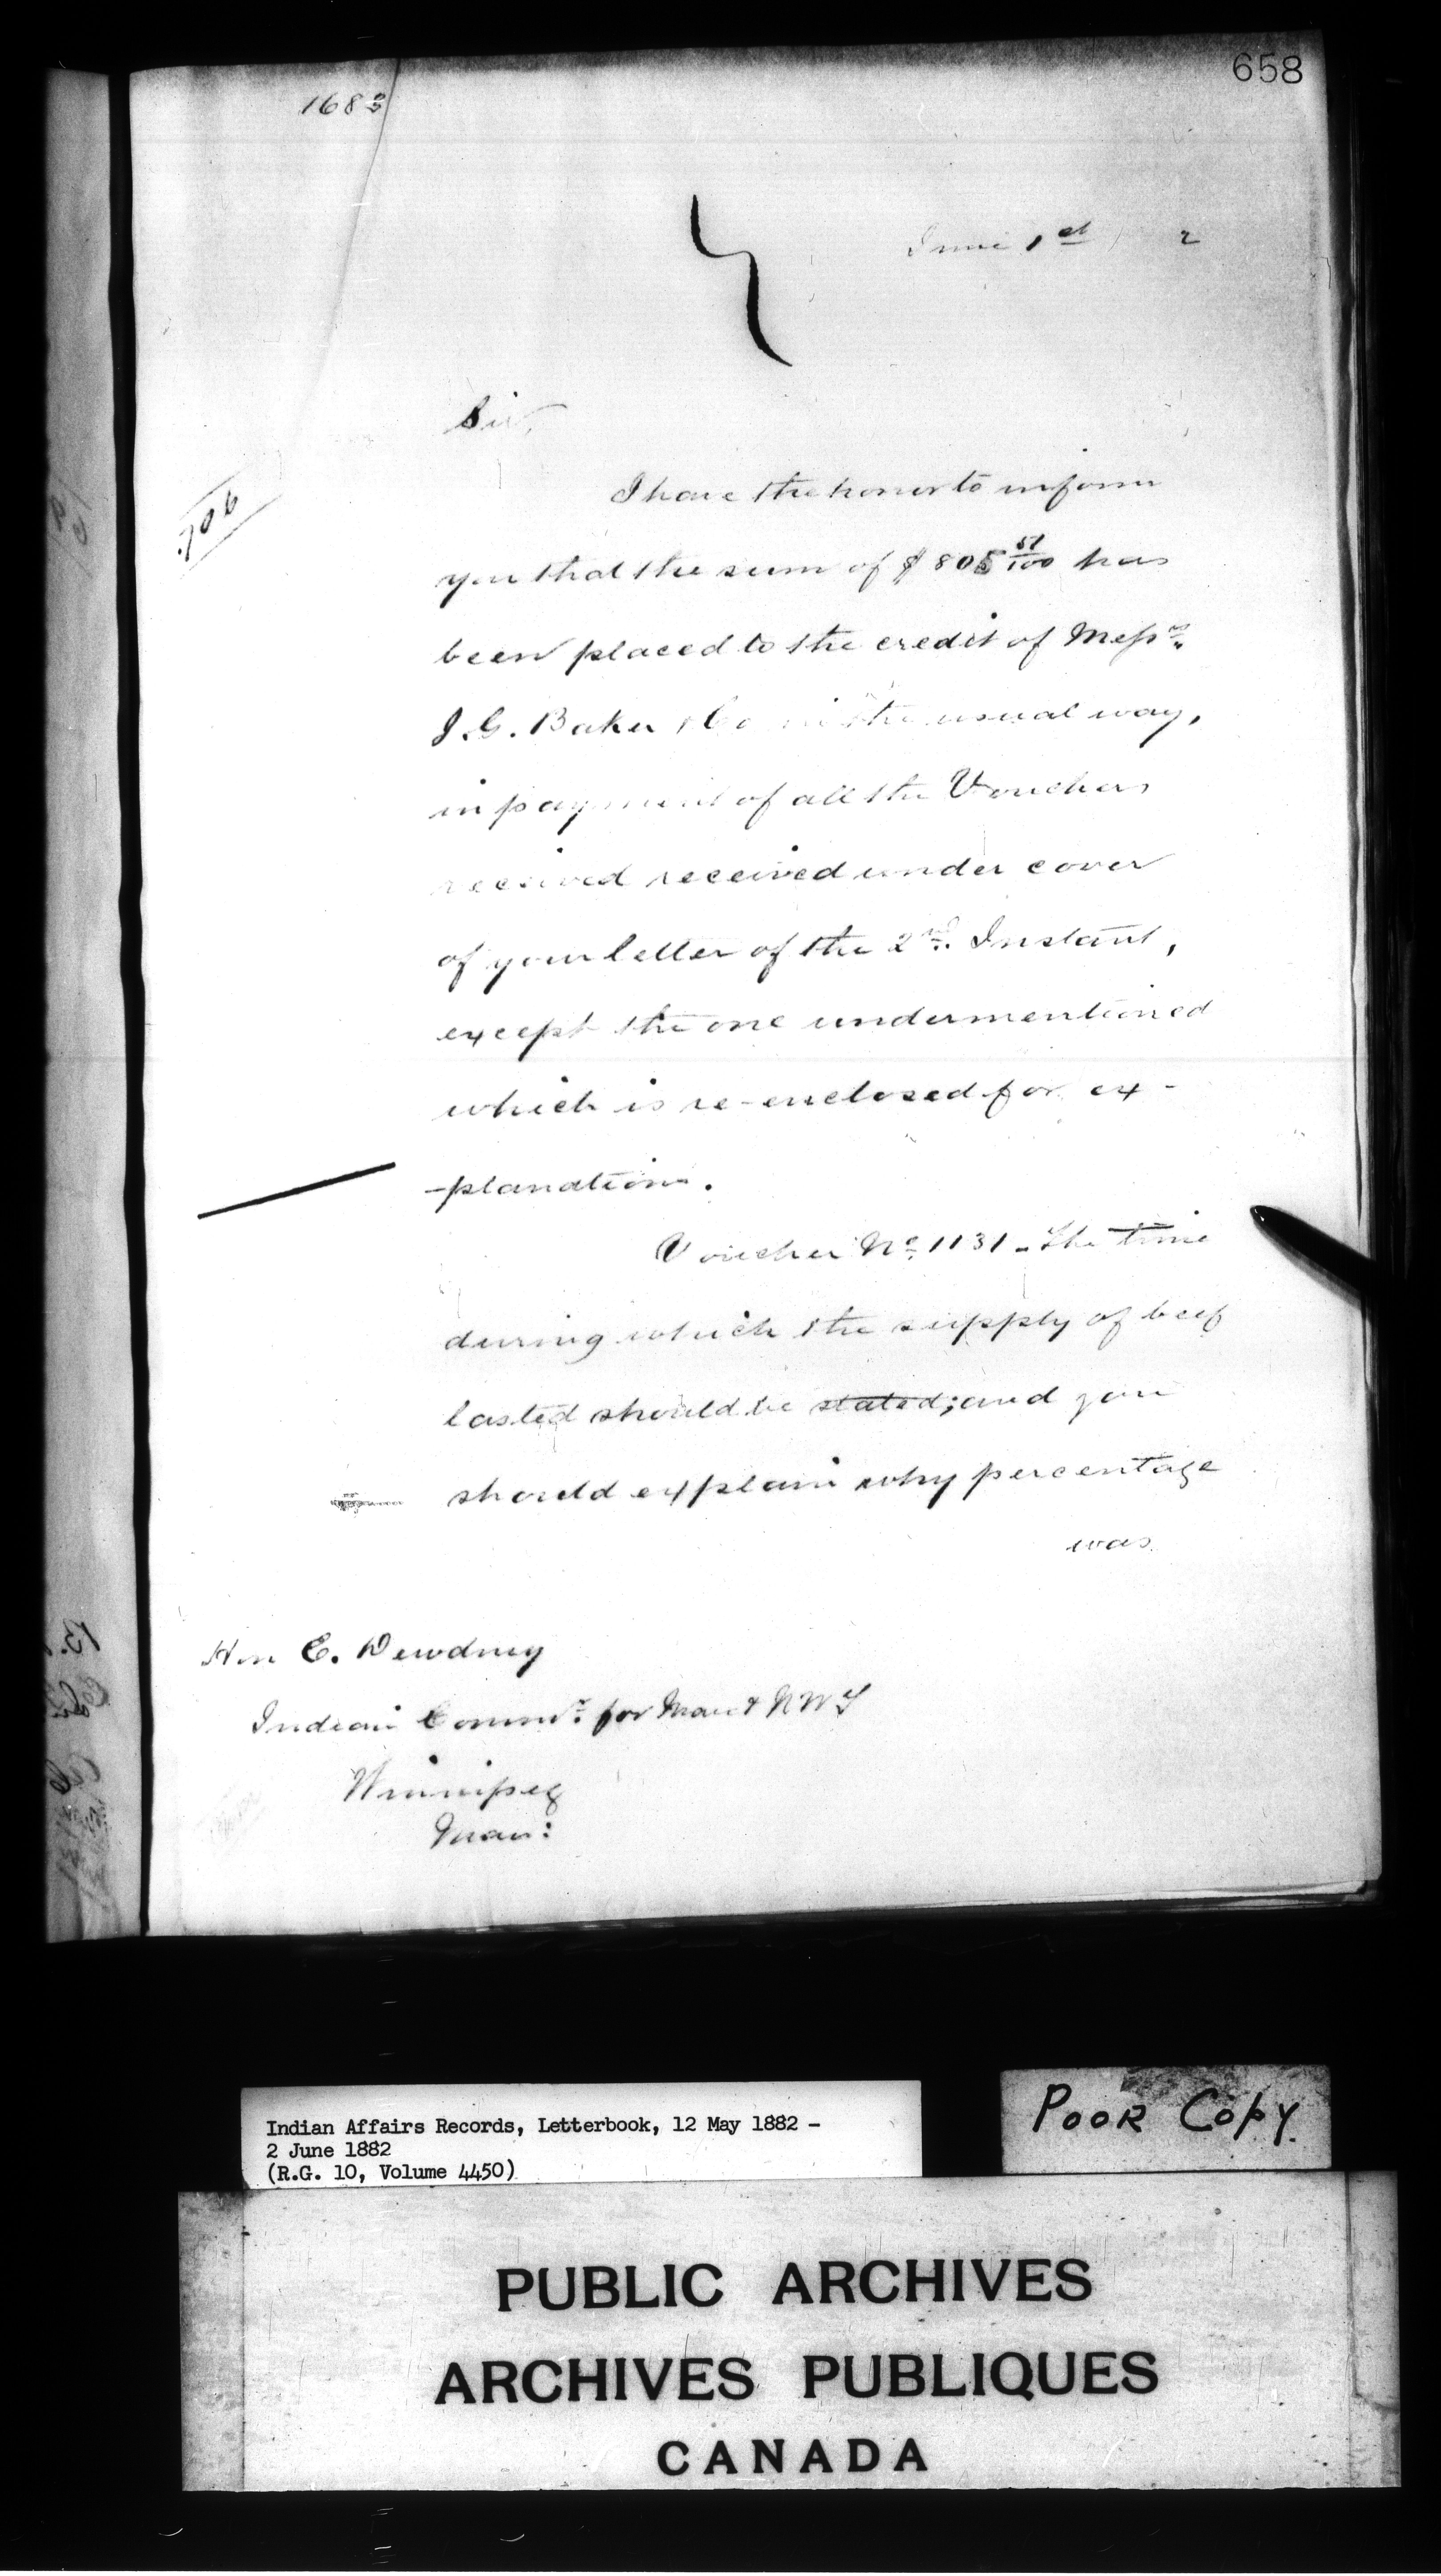 658
1683
June 1st 2
Sir,
706
I have the honor to inform
you that the sum of $805 51/100 has
been placed to the credit of Messrs.
J. G. Baker & Co in the usual way,
in payment of all the Vouchers
received received under cover
of your letter of the 2nd. Instant,
except the one undermentioned
which is re-enclosed for ex-
-planation.
Voucher No. 1131 - The time
during which the supply of beef
lasted should be stated; and you
should explain why percentage
was
Hon E. Dewdney
Indian Commr. for Man & NWT
Winnipeg
Man:
Indian Affairs Records, Letterbook, 12 May 1882 -
2 June 1882
(R.G. 10, Volume 4450)
POOR COPY.
PUBLIC ARCHIVES
ARCHIVES PUBLIQUES
CANADA